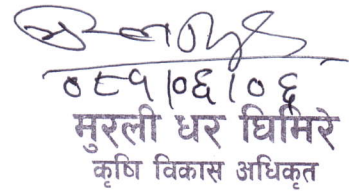 ०८१।०६।०६
मुरली धर घिमिरे
कृषि विकास अधिकृत